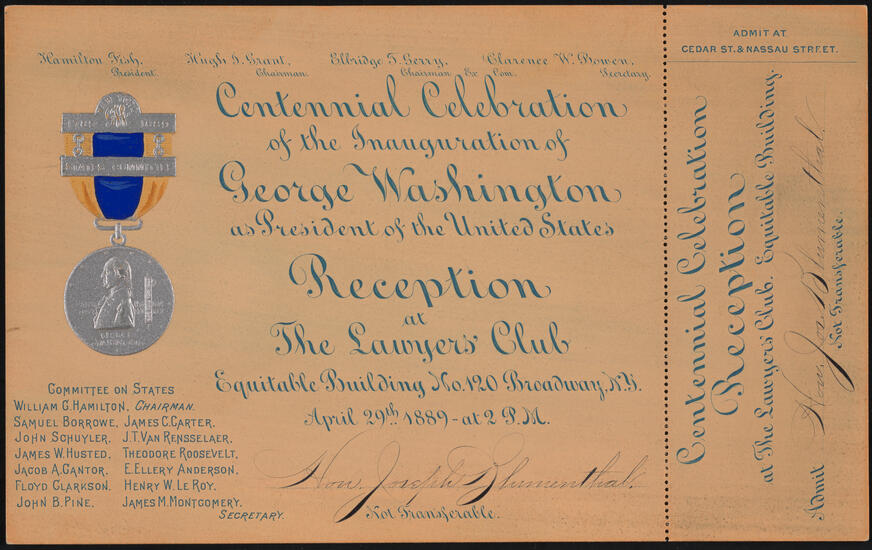 Hamilton Fish, Hugh J. Grant, Elbridge T. Gerry, Clarence W. Bowen,
President. Chairman. Chairman Ex Com. Secretary.
Centennial Celebration
of the Inauguration of
George Washington
as President of the United States
Reception
at
The Lawyers' Club
Equitable Building No. 120 Broadway, N.Y.
April 29th 1889 - at 2 P.M.
Hon. Joseph Blumenthal.
Not Transferable.
STATES COMMITTEE
GEORGE
WASHINGTON
COMMITTEE ON STATES
WILLIAM G. HAMILTON, CHAIRMAN.
SAMUEL BORROWE, JAMES C. CARTER.
JOHN SCHUYLER, J.T. VAN RENSSELAER,
JAMES W. HUSTED, THEODORE ROOSEVELT.
JACOB A. CANTOR, E. ELLERY ANDERSON.
FLOYD CLARKSON, HENRY W. LE ROY.
JOHN B. PINE, JAMES M. MONTGOMERY.
SECRETARY.
ADMIT AT
CEDAR ST. & NASSAU STREET.
Centennial Celebration
Reception
at The Lawyers' Club. Equitable Building.
Admit Hon. Jos. Blumenthal.
Not Transferable.